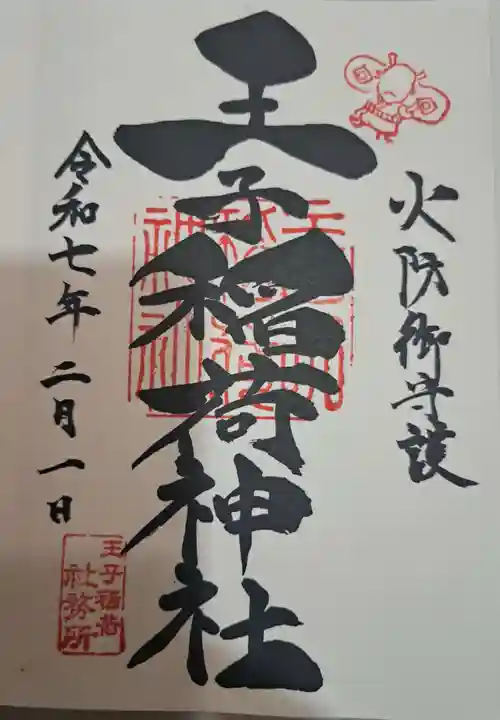 火防御守護
王子稲荷神社
令和七年二月一日
王子稲荷
社務所